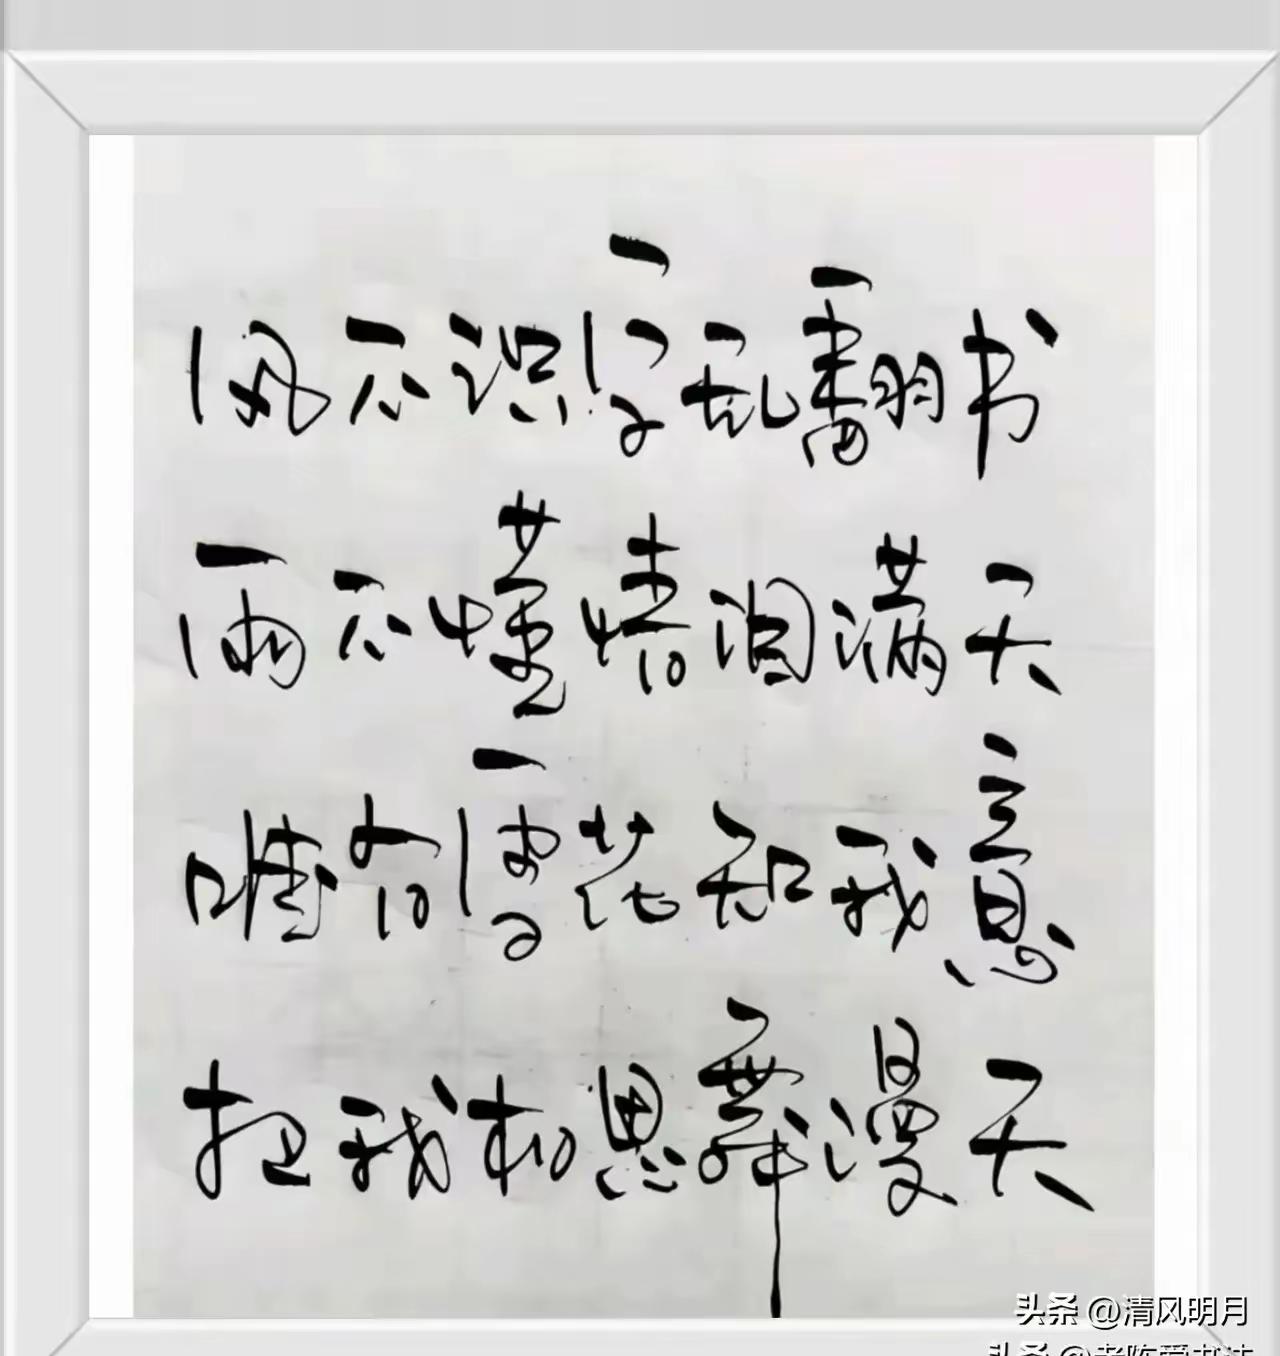 风不识字乱翻书
雨不懂情泪满天
唯有雪花知我意
把我相思舞漫天
头条 @清风明月
头条 @老陈爱书法